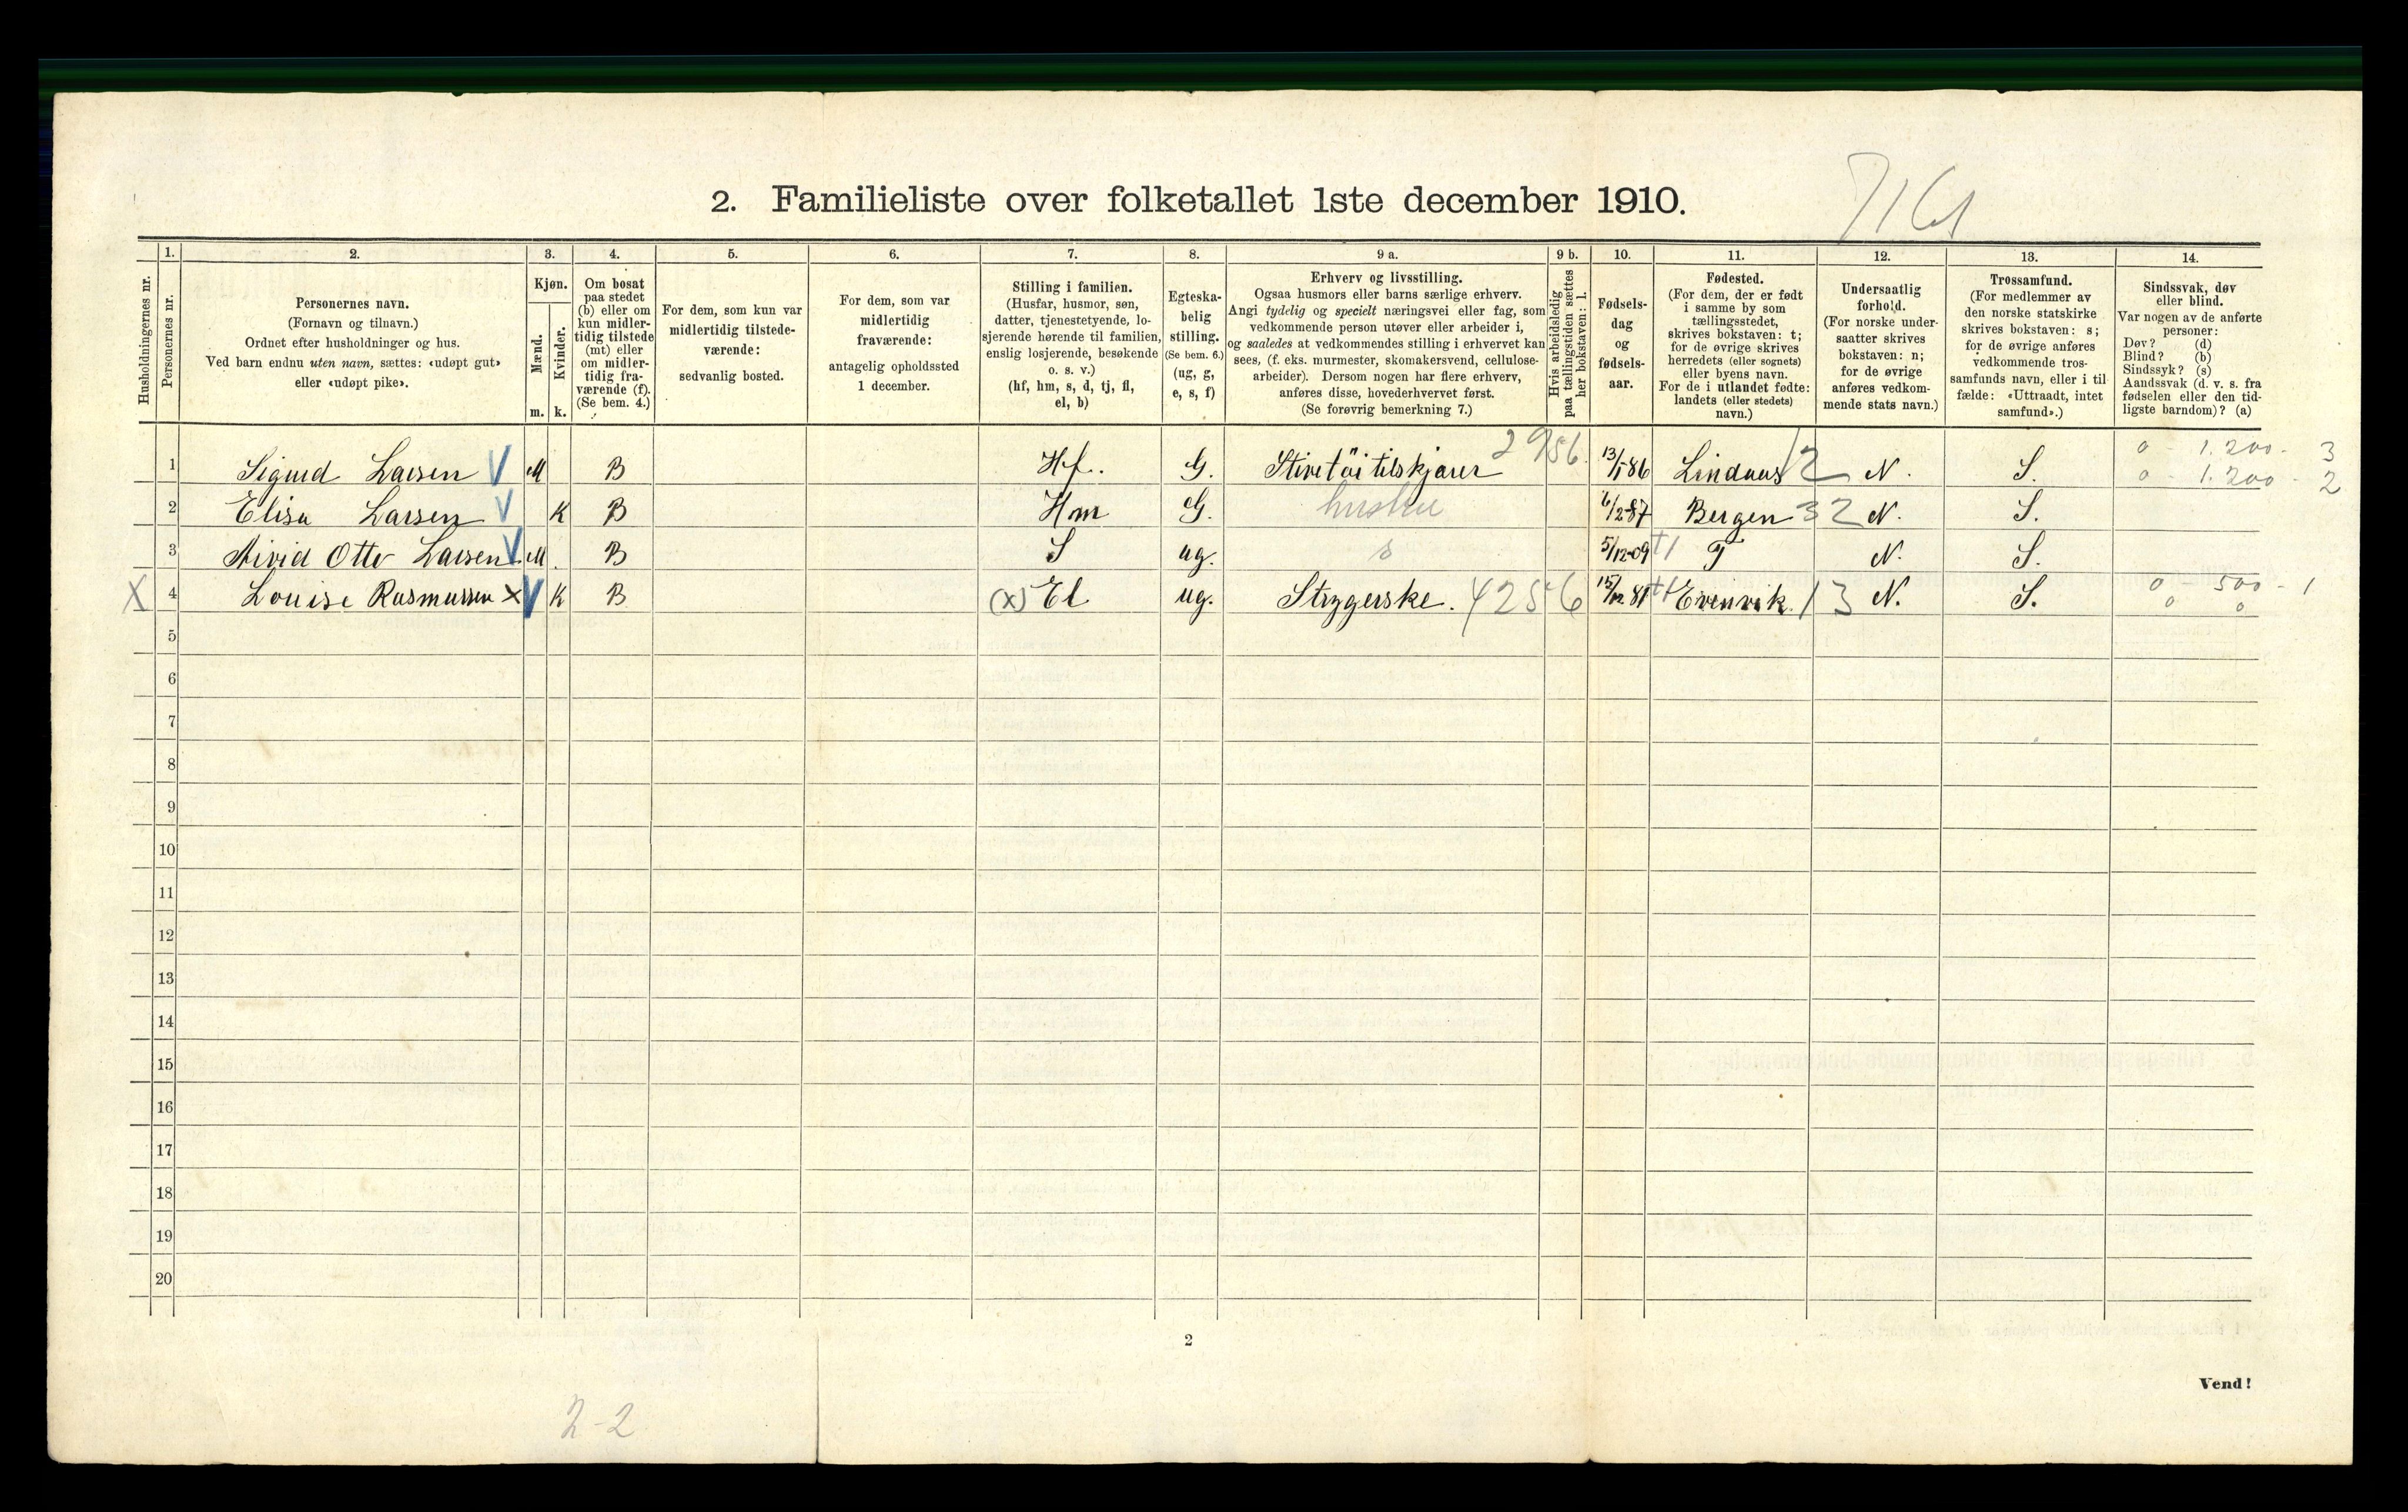 2. Familieliste over folketallet 1ste december 1910.
Husholdningernes nr.
1.
Personernes nr.
2.
Personernes navn.
(Fornavn og tilnavn.)
Ordnet efter husholdninger og hus.
Ved barn endnu uten navn, sættes: «udøpt gut»
eller «udøpt pike».
3.
Kjøn.
Mænd.
Kvinder.
m.
k.
4.
Om bosat
paa stedet
(b) eller om
kun midler-
tidig tilstede
(mt) eller
om midler-
tidig fra-
værende (f).
(Se bem. 4.)
5.
For dem, som kun var
midlertidig tilstede-
værende:
sedvanlig bosted.
6.
For dem, som var
midlertidig
fraværende:
antagelig opholdssted
1 december.
7.
Stilling i familien.
(Husfar, husmor, søn,
datter, tjenestetyende, lo-
sjerende hørende til familien,
enslig losjerende, besøkende
o. s. v.)
(hf, hm, s, d, tj, fl,
el, b)
8.
Egteska-
belig
stilling.
(Se bem. 6.)
(ug, g,
e, s, f)
9 a.
Erhverv og livsstilling.
Ogsaa husmors eller barns særlige erhverv.
Angi tydelig og specielt næringsvei eller fag, som
vedkommende person utøver eller arbeider i,
og saaledes at vedkommendes stilling i erhvervet kan
sees, (f. eks. murmester, skomakersvend, cellulose-
arbeider). Dersom nogen har flere erhverv,
anføres disse, hovederhvervet først.
(Se forøvrig bemerkning 7.)
9 b.
Hvis arbeidsledig
paa tællingstiden sættes
her bokstaven: l.
10.
Fødsels-
dag
og
fødsels-
aar.
11.
Fødested.
(For dem, der er født
i samme by som
tællingsstedet,
skrives bokstaven: t;
for de øvrige skrives
herredets (eller sognets)
eller byens navn.
For de i utlandet fødte:
landets (eller stedets)
navn.)
12.
Undersaatlig
forhold.
(For norske under-
saatter skrives
bokstaven: n;
for de øvrige
anføres vedkom-
mende stats navn.)
13.
Trossamfund.
(For medlemmer av
den norske statskirke
skrives bokstaven: s;
for de øvrige anføres
vedkommende tros-
samfunds navn, eller i til-
fælde: «Uttraadt, intet
samfund».)
14.
Sindssvak, døv
eller blind.
Var nogen av de anførte
personer:
Døv? (d)
Blind? (b)
Sindssyk? (s)
Aandssvak (d. v. s. fra
fødselen eller den tid-
ligste barndom)? (a)
1 Sigurd Larsen V M B Hf. G. Stivetöitilskjærer 2956. 13/1-86 Lindaas 12 N. S. 0 - 1.200 - 3
0 - 1.200 - 2
2 Elisa Larsen V K B Hm G. 6/2-87 Bergen 32 N. S.
3 Arvid Otto Larsen V M. B S ug. s 5/12-09 T N. S.
X 4 Louise Rasmussen X V K B (x) El ug. Strygerske. 4256 15/12 81 Evenvik. 13 N. S. 0 500 - 1
0 0
5
6
7
8
9
10
11
12
13
14
15
16
17
18
19
20
2
Vend!
2-2